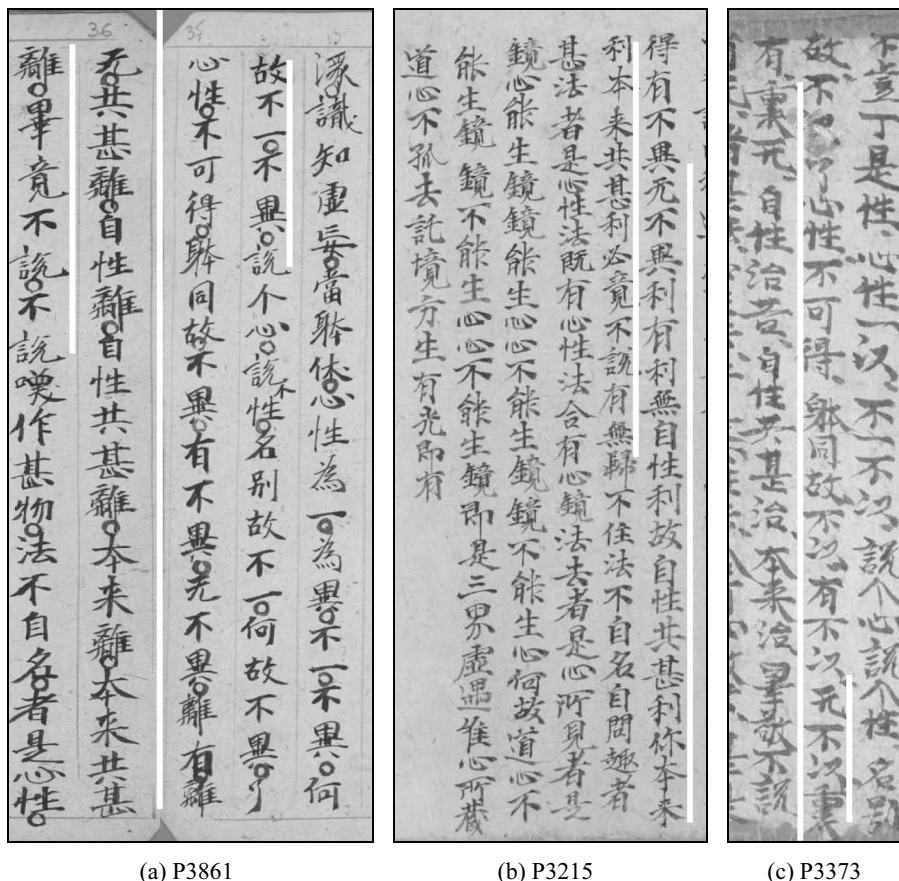 36
35
識知虛妄。當躰依心性為一。為異。不一不異。何
故不一不異。說个心。說不性。名別故不一。何故不異。了
心性。不可得。躰同故不異。有不異。无不異。離有離
无。共甚離。自性離。自性共甚離。本来離。本来共甚
離。畢竟不說。不說嘆作甚物。法不自名者是心性。
得有不異无不異利有利無自性利故自性共甚利你本来
利本来共甚利必竟不説有無歸不住法不自名自問趣者
甚法者是心性法既有心性法合有心鏡法去者是心所見者是
鏡心能生鏡鏡能生心心不能生鏡鏡不能生心何故道心不
能生鏡鏡不能生心心不能生鏡即是三界虛遇惟心所藏
道心不孤去託境方生有光即有
不豈丁是性、心性一汉、不一不汉、說个心說个性、名别
故不汉、了心性、不可得、躰同故不汉、有不汉、无不汉、重
有重无、自性治苦、自性共甚治、本来治、畢竟不說
(a) P3861
(b) P3215
(c) P3373